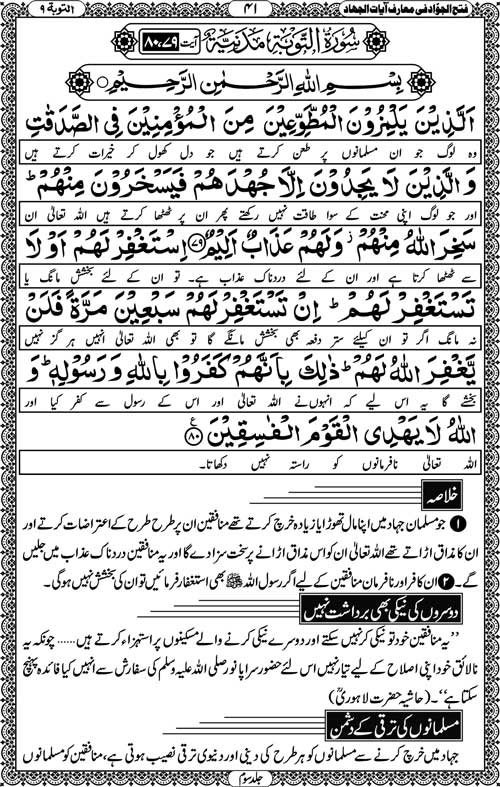 فتح الجوّاد فی معارف آیات الجهاد
۴۱
التوبة ۹
سُوْرَةُ التَّوْبَةِ مَدَنِيَّةٌ
آیت ۸۰،۷۹
بِسْمِ اللّٰهِ الرَّحْمٰنِ الرَّحِيْمِ
اَلَّذِيْنَ يَلْمِزُوْنَ الْمُطَّوِّعِيْنَ مِنَ الْمُؤْمِنِيْنَ فِى الصَّدَقٰتِ
وہ لوگ جو ان مسلمانوں پر طعن کرتے ہیں جو دل کھول کر خیرات کرتے ہیں
وَالَّذِيْنَ لَا يَجِدُوْنَ اِلَّا جُهْدَهُمْ فَيَسْخَرُوْنَ مِنْهُمْ ؕ
اور جو لوگ اپنی محنت کے سوا طاقت نہیں رکھتے پھر ان پر ٹھٹھا کرتے ہیں اللہ تعالیٰ ان
سَخِرَ اللّٰهُ مِنْهُمْ ۫ وَلَهُمْ عَذَابٌ اَلِيْمٌ ﴿۷۹﴾ اِسْتَغْفِرْ لَهُمْ اَوْ لَا
سے ٹھٹھا کرتا ہے اور ان کے لئے دردناک عذاب ہے۔ تو ان کے لئے بخشش مانگ یا
تَسْتَغْفِرْ لَهُمْ ؕ اِنْ تَسْتَغْفِرْ لَهُمْ سَبْعِيْنَ مَرَّةً فَلَنْ
نہ مانگ اگر تو ان کیلئے ستر دفعہ بھی بخشش مانگے گا تو بھی اللہ تعالیٰ انہیں ہر گز نہیں
يَّغْفِرَ اللّٰهُ لَهُمْ ؕ ذٰلِكَ بِاَنَّهُمْ كَفَرُوْا بِاللّٰهِ وَ رَسُوْلِهٖ ؕ وَ
بخشے گا یہ اس لیے کہ انہوں نے اللہ تعالیٰ اور اس کے رسول سے کفر کیا اور
اللّٰهُ لَا يَهْدِى الْقَوْمَ الْفٰسِقِيْنَ ﴿۸۰﴾ ع
اللہ تعالیٰ نافرمانوں کو راستہ نہیں دکھاتا۔
خلاصہ
❶ جو مسلمان جہاد میں اپنا مال تھوڑا یا زیادہ خرچ کرتے تھے منافقین ان پر طرح طرح کے اعتراضات کرتے اور
ان کا مذاق اڑاتے تھے اللہ تعالیٰ ان کو اس مذاق اڑانے پر سخت سزا دے گا اور یہ منافقین دردناک عذاب میں جلیں
گے۔ ❷ ان کافر اور نافرمان منافقین کے لیے اگر رسول اللہ ﷺ بھی استغفار فرمائیں تو ان کی بخشش نہیں ہوگی۔
دوسروں کی نیکی بھی برداشت نہیں
’’یہ منافقین خود تو نیکی کر نہیں سکتے اور دوسرے نیکی کرنے والے مسکینوں پر استہزاء کرتے ہیں...... چونکہ یہ
نالائق خود اپنی اصلاح کے لیے تیار نہیں اس لئے حضور سراپا نور صلی اللہ علیہ وسلم کی سفارش سے انہیں کیا فائدہ پہنچ
سکتا ہے‘‘۔ (حاشیہ حضرت لاہوریؒ)
مسلمانوں کی ترقی کے دشمن
جہاد میں خرچ کرنے سے مسلمانوں کو ہر طرح کی دینی اور دنیوی ترقی نصیب ہوتی ہے، منافقین کو مسلمانوں
جلد سوم